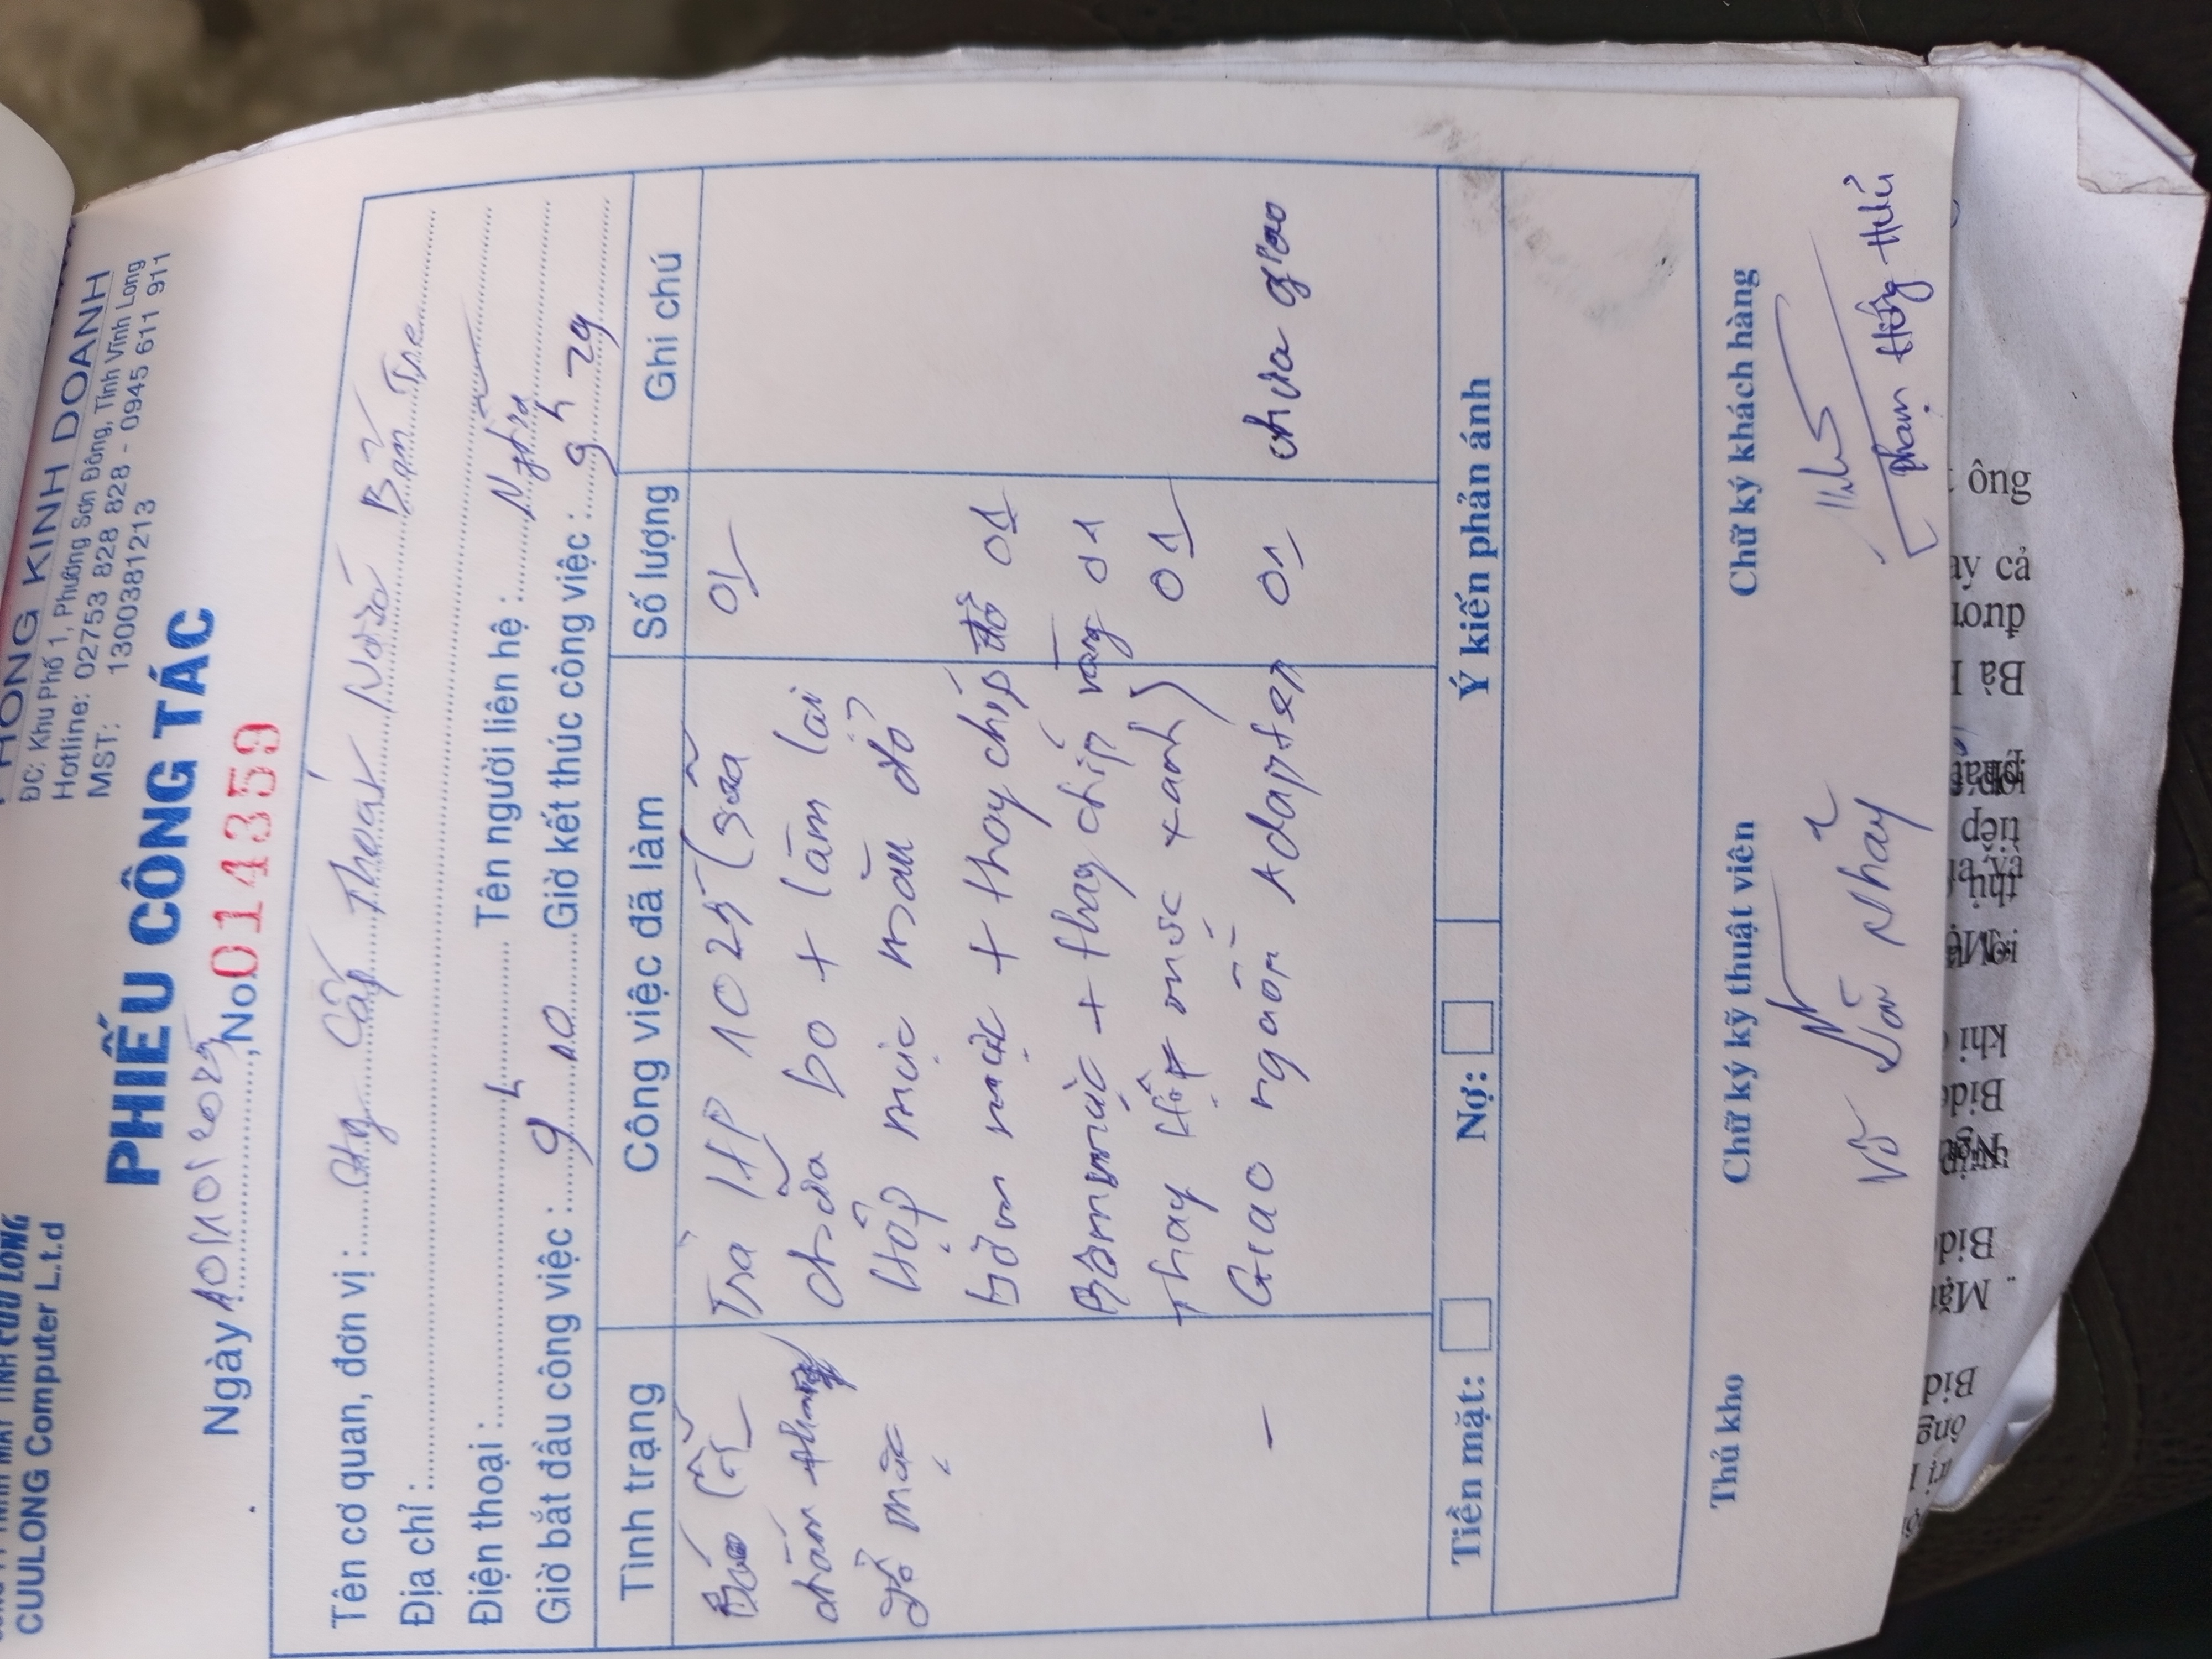 CUULONG Computer L.t.d
PHÒNG KINH DOANH
ĐC: Khu Phố 1, Phường Sơn Đông, Tỉnh Vĩnh Long
Hotline: 02753 828 828 - 0945 611 911
MST: 1300381213
PHIẾU CÔNG TÁC
Ngày 10/10/2025, No. 014359
Tên cơ quan, đơn vị : Cty Cấp Thoát Nước Bến Tre
Địa chỉ :
Điện thoại : Tên người liên hệ : Nghĩa
Giờ bắt đầu công việc : 9h10 Giờ kết thúc công việc : 9h29
Tình trạng Công việc đã làm Số lượng Ghi chú
Báo lỗi Trả HP 1025 (sửa 01
chấm chữa bo + làm lại
đổ mực Hộp mực màu đỏ)
Bơm mực + thay chip đỏ 01
Bơm mực + thay chip vàng 01
Thay Hộp mực xanh) 01
- Giao nguồn Adapter 01 chưa giao
Tiền mặt: Nợ: Ý kiến phản ánh
Thủ kho Chữ ký kỹ thuật viên Chữ ký khách hàng
Võ Văn Nhảy
Phạm Hồng Hữu